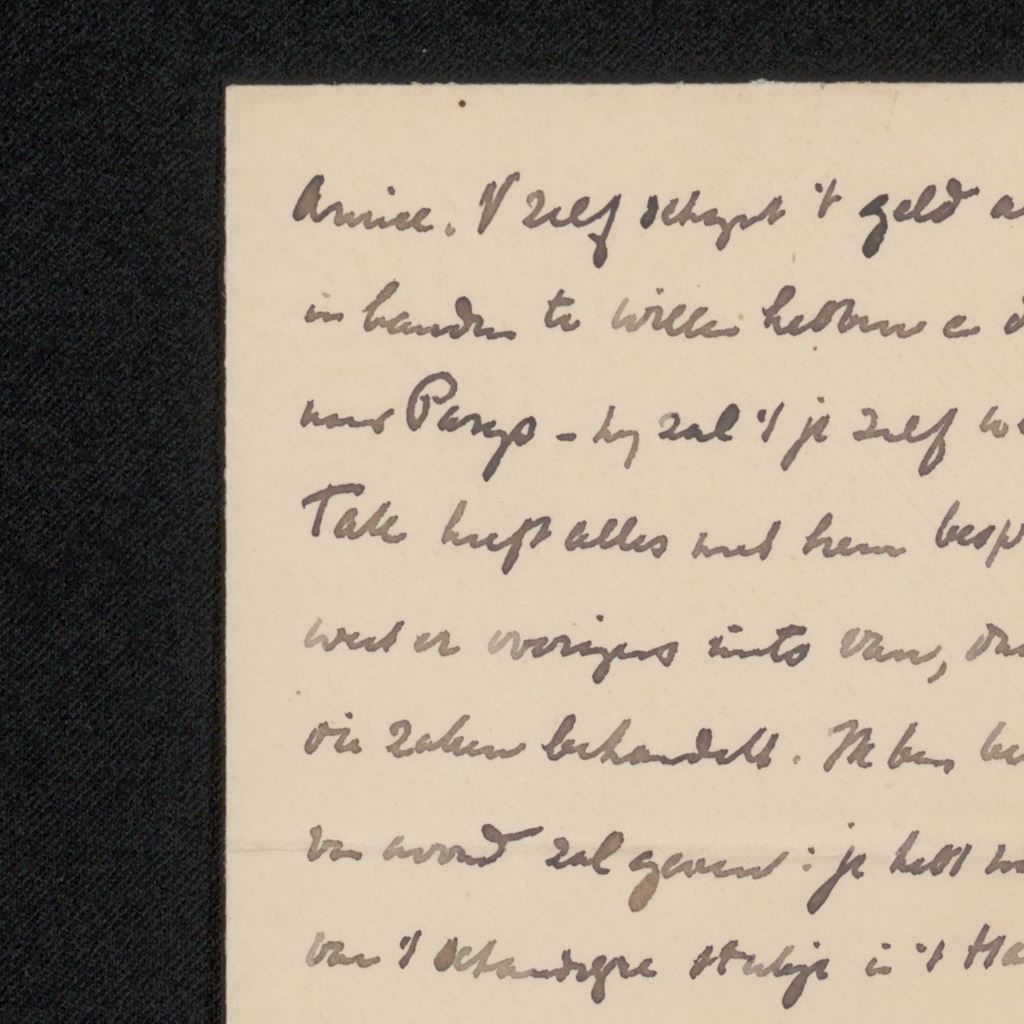 Amice. V zelf schynt 't geld a
in handen te willen hebben en d
naar Parys - hy zal 't je zelf we
Tak heeft alles met hem besp
weet er overigens niets van, da
die zaken behandelt. Ik ben be
van avond zal geven: je hebt
van 't schandegre stukje in 't Ha